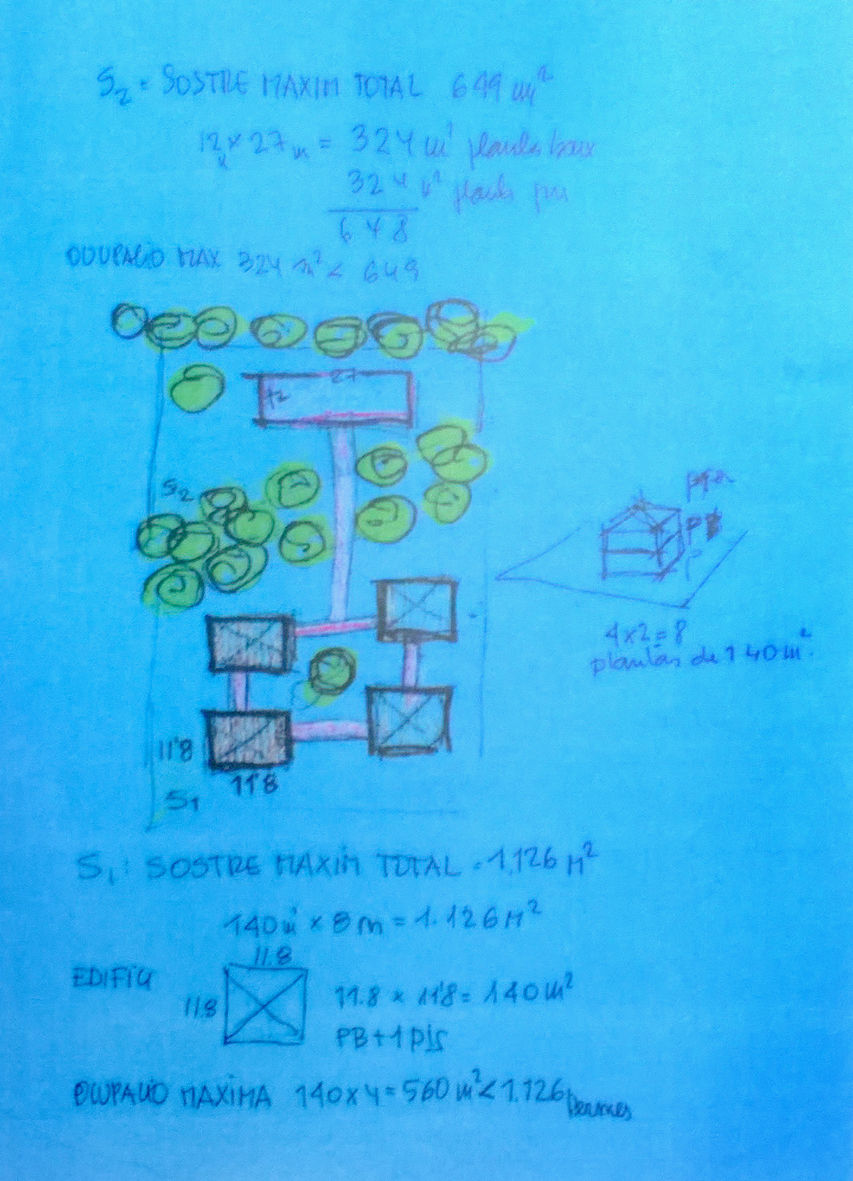 S2 = SOSTRE MAXIM TOTAL 649 m²
12 x 27 m = 324 m² planta baixa
324 m² planta pis
648
OCUPACIÓ MAX 324 m² < 649
27
12
S2
4x2=8
plantas de 140 m².
11'8
11'8
S1
S1: SOSTRE MAXIM TOTAL = 1,126 M²
140 m² x 8 m = 1.126 M²
11.8
EDIFICI
11.8
11.8 x 11'8 = 140 m²
PB+1 pis
OCUPACIÓ MAXIMA 140x4=560 m² < 1.126